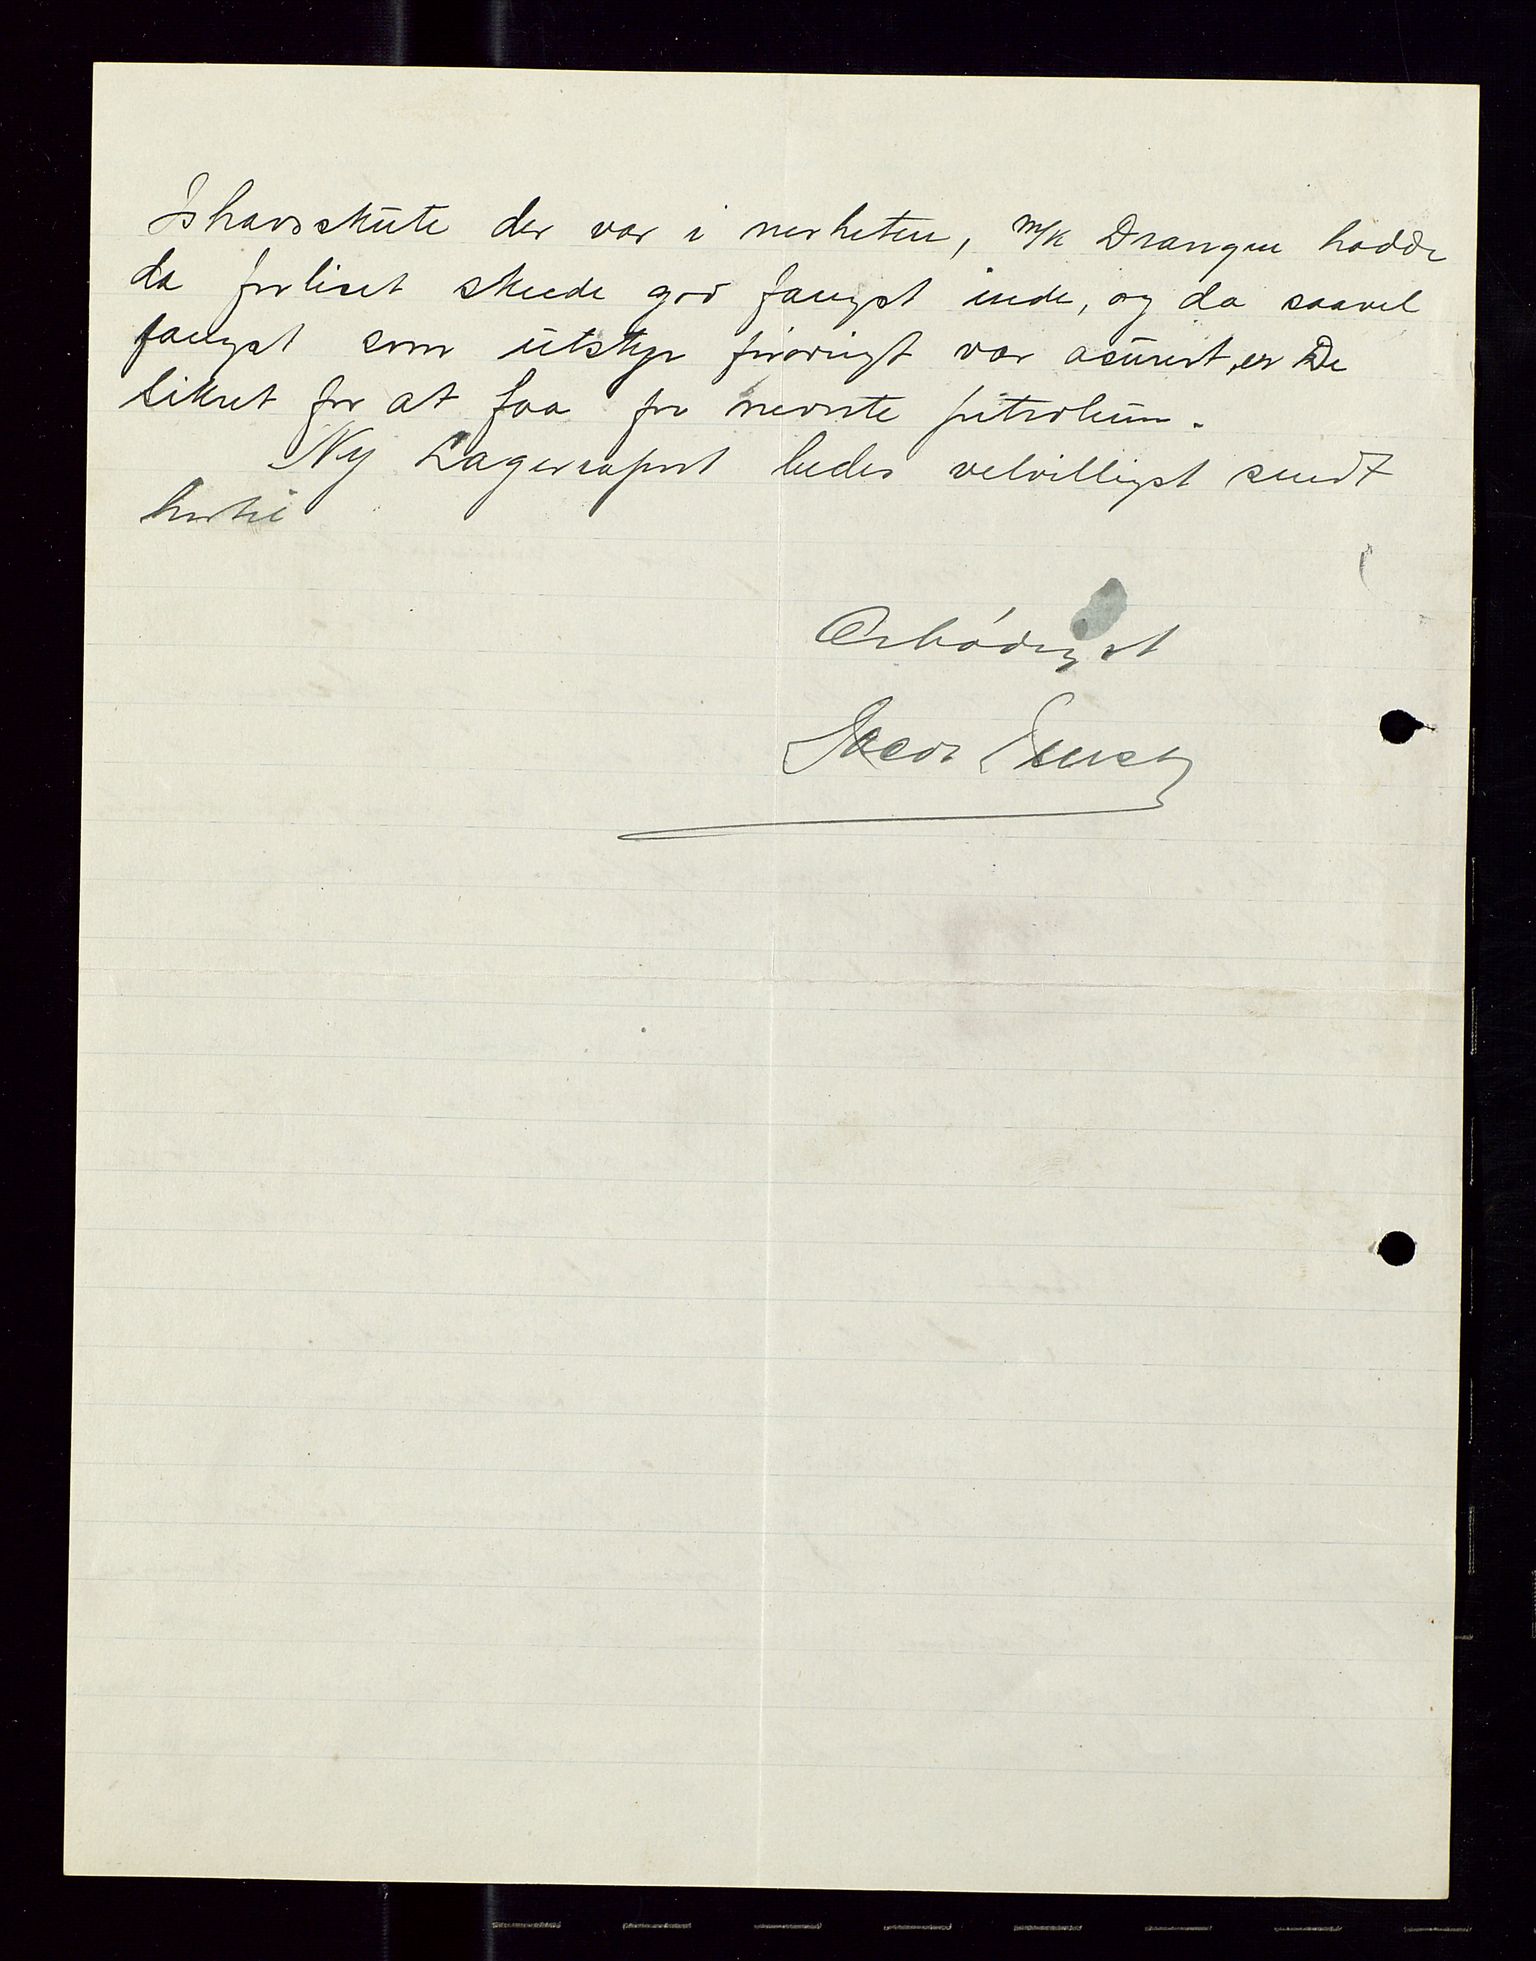 Ishavsskute der var i nerheten, m/k Drangen hadde
da forliset skeede god fangst inde, og da saavel
fangst som utstyr forøvrigt var asurert, er De
sikret for at faa for nevnte petroleum.
Ny Lagerraport bedes velvilligst sendt
hertil
Ærbødigst
Jacob